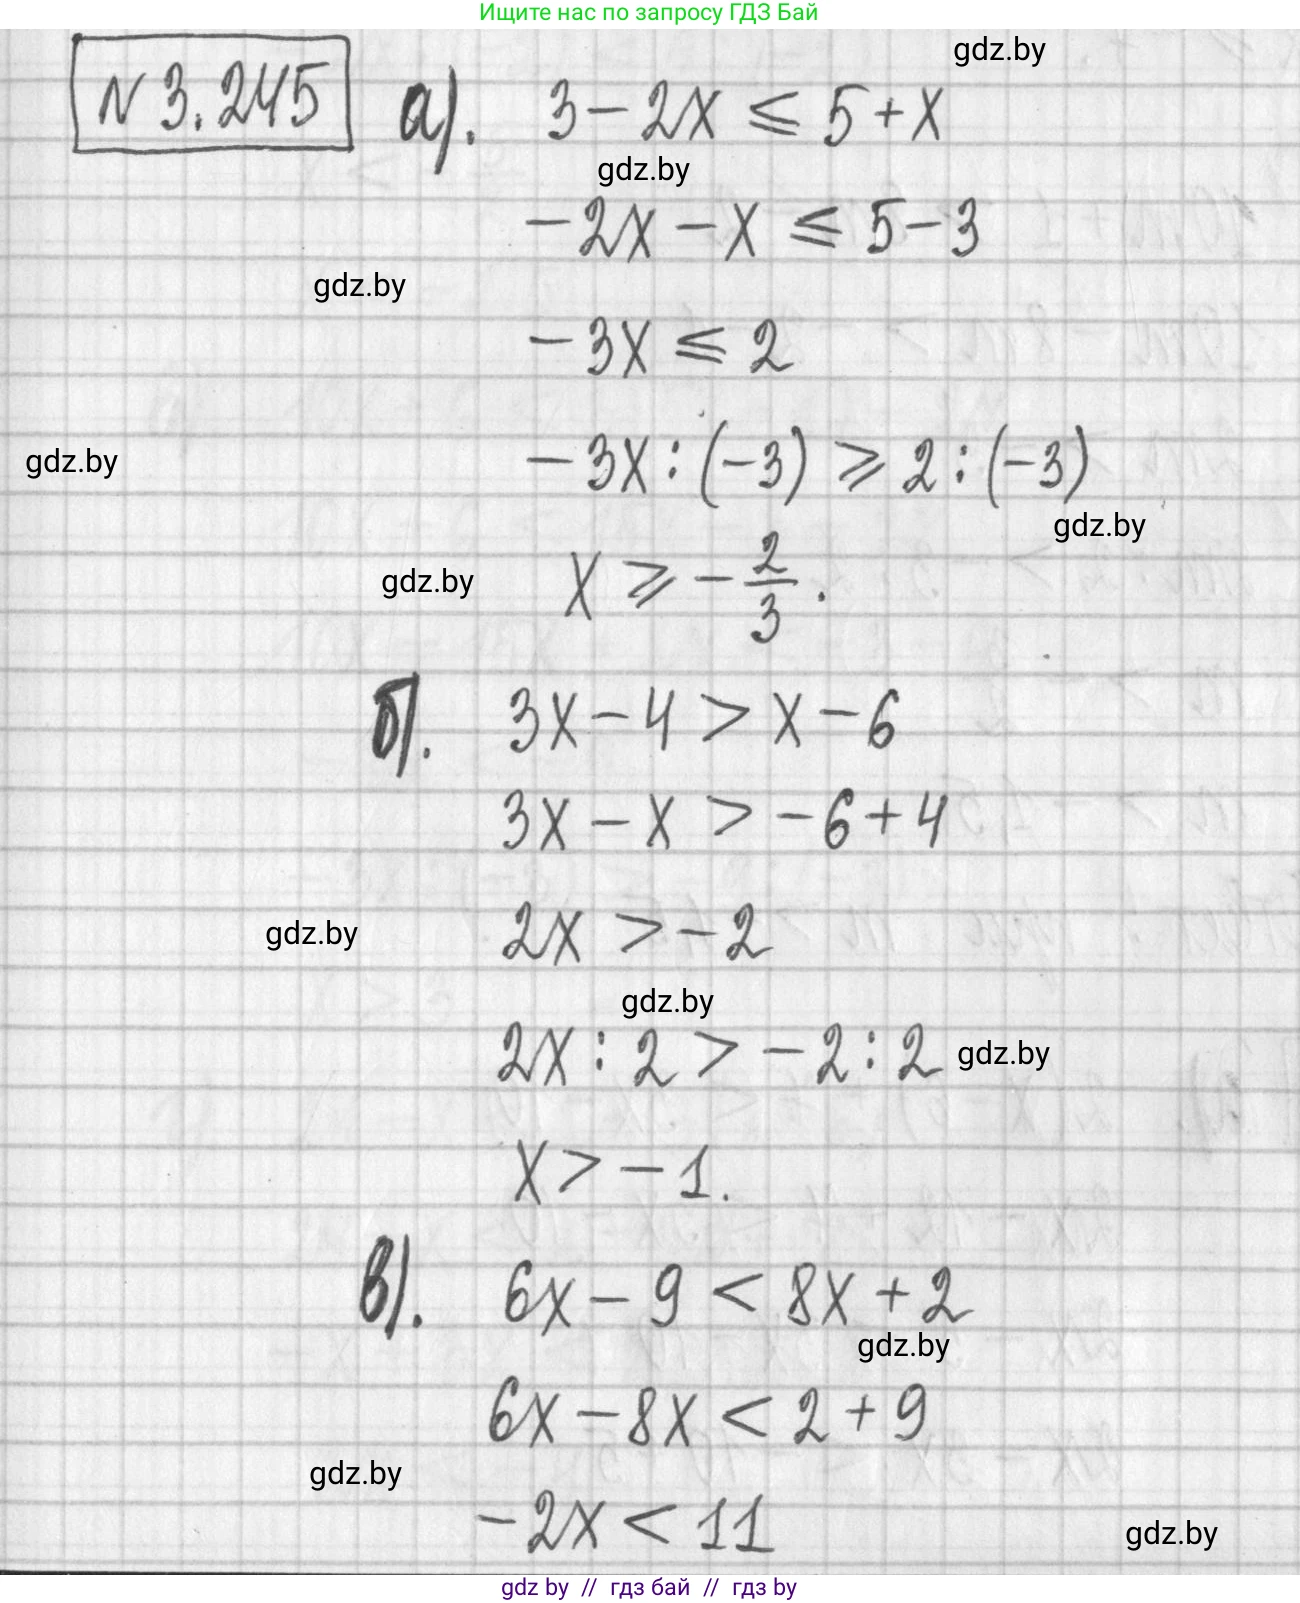 Ищите нас по запросу ГДЗ Бай
gdz.by
N 3.245 а). 3 - 2x ≤ 5 + x
gdz.by
-2x - x ≤ 5 - 3
gdz.by
-3x ≤ 2
gdz.by -3x : (-3) ≥ 2 : (-3)
gdz.by
gdz.by x ≥ -2/3.
б). 3x - 4 > x - 6
3x - x > -6 + 4
gdz.by 2x > -2
gdz.by
2x : 2 > -2 : 2 gdz.by
x > -1.
в). 6x - 9 < 8x + 2
gdz.by
6x - 8x < 2 + 9
gdz.by
-2x < 11 gdz.by
gdz by // гдз бай // гдз by